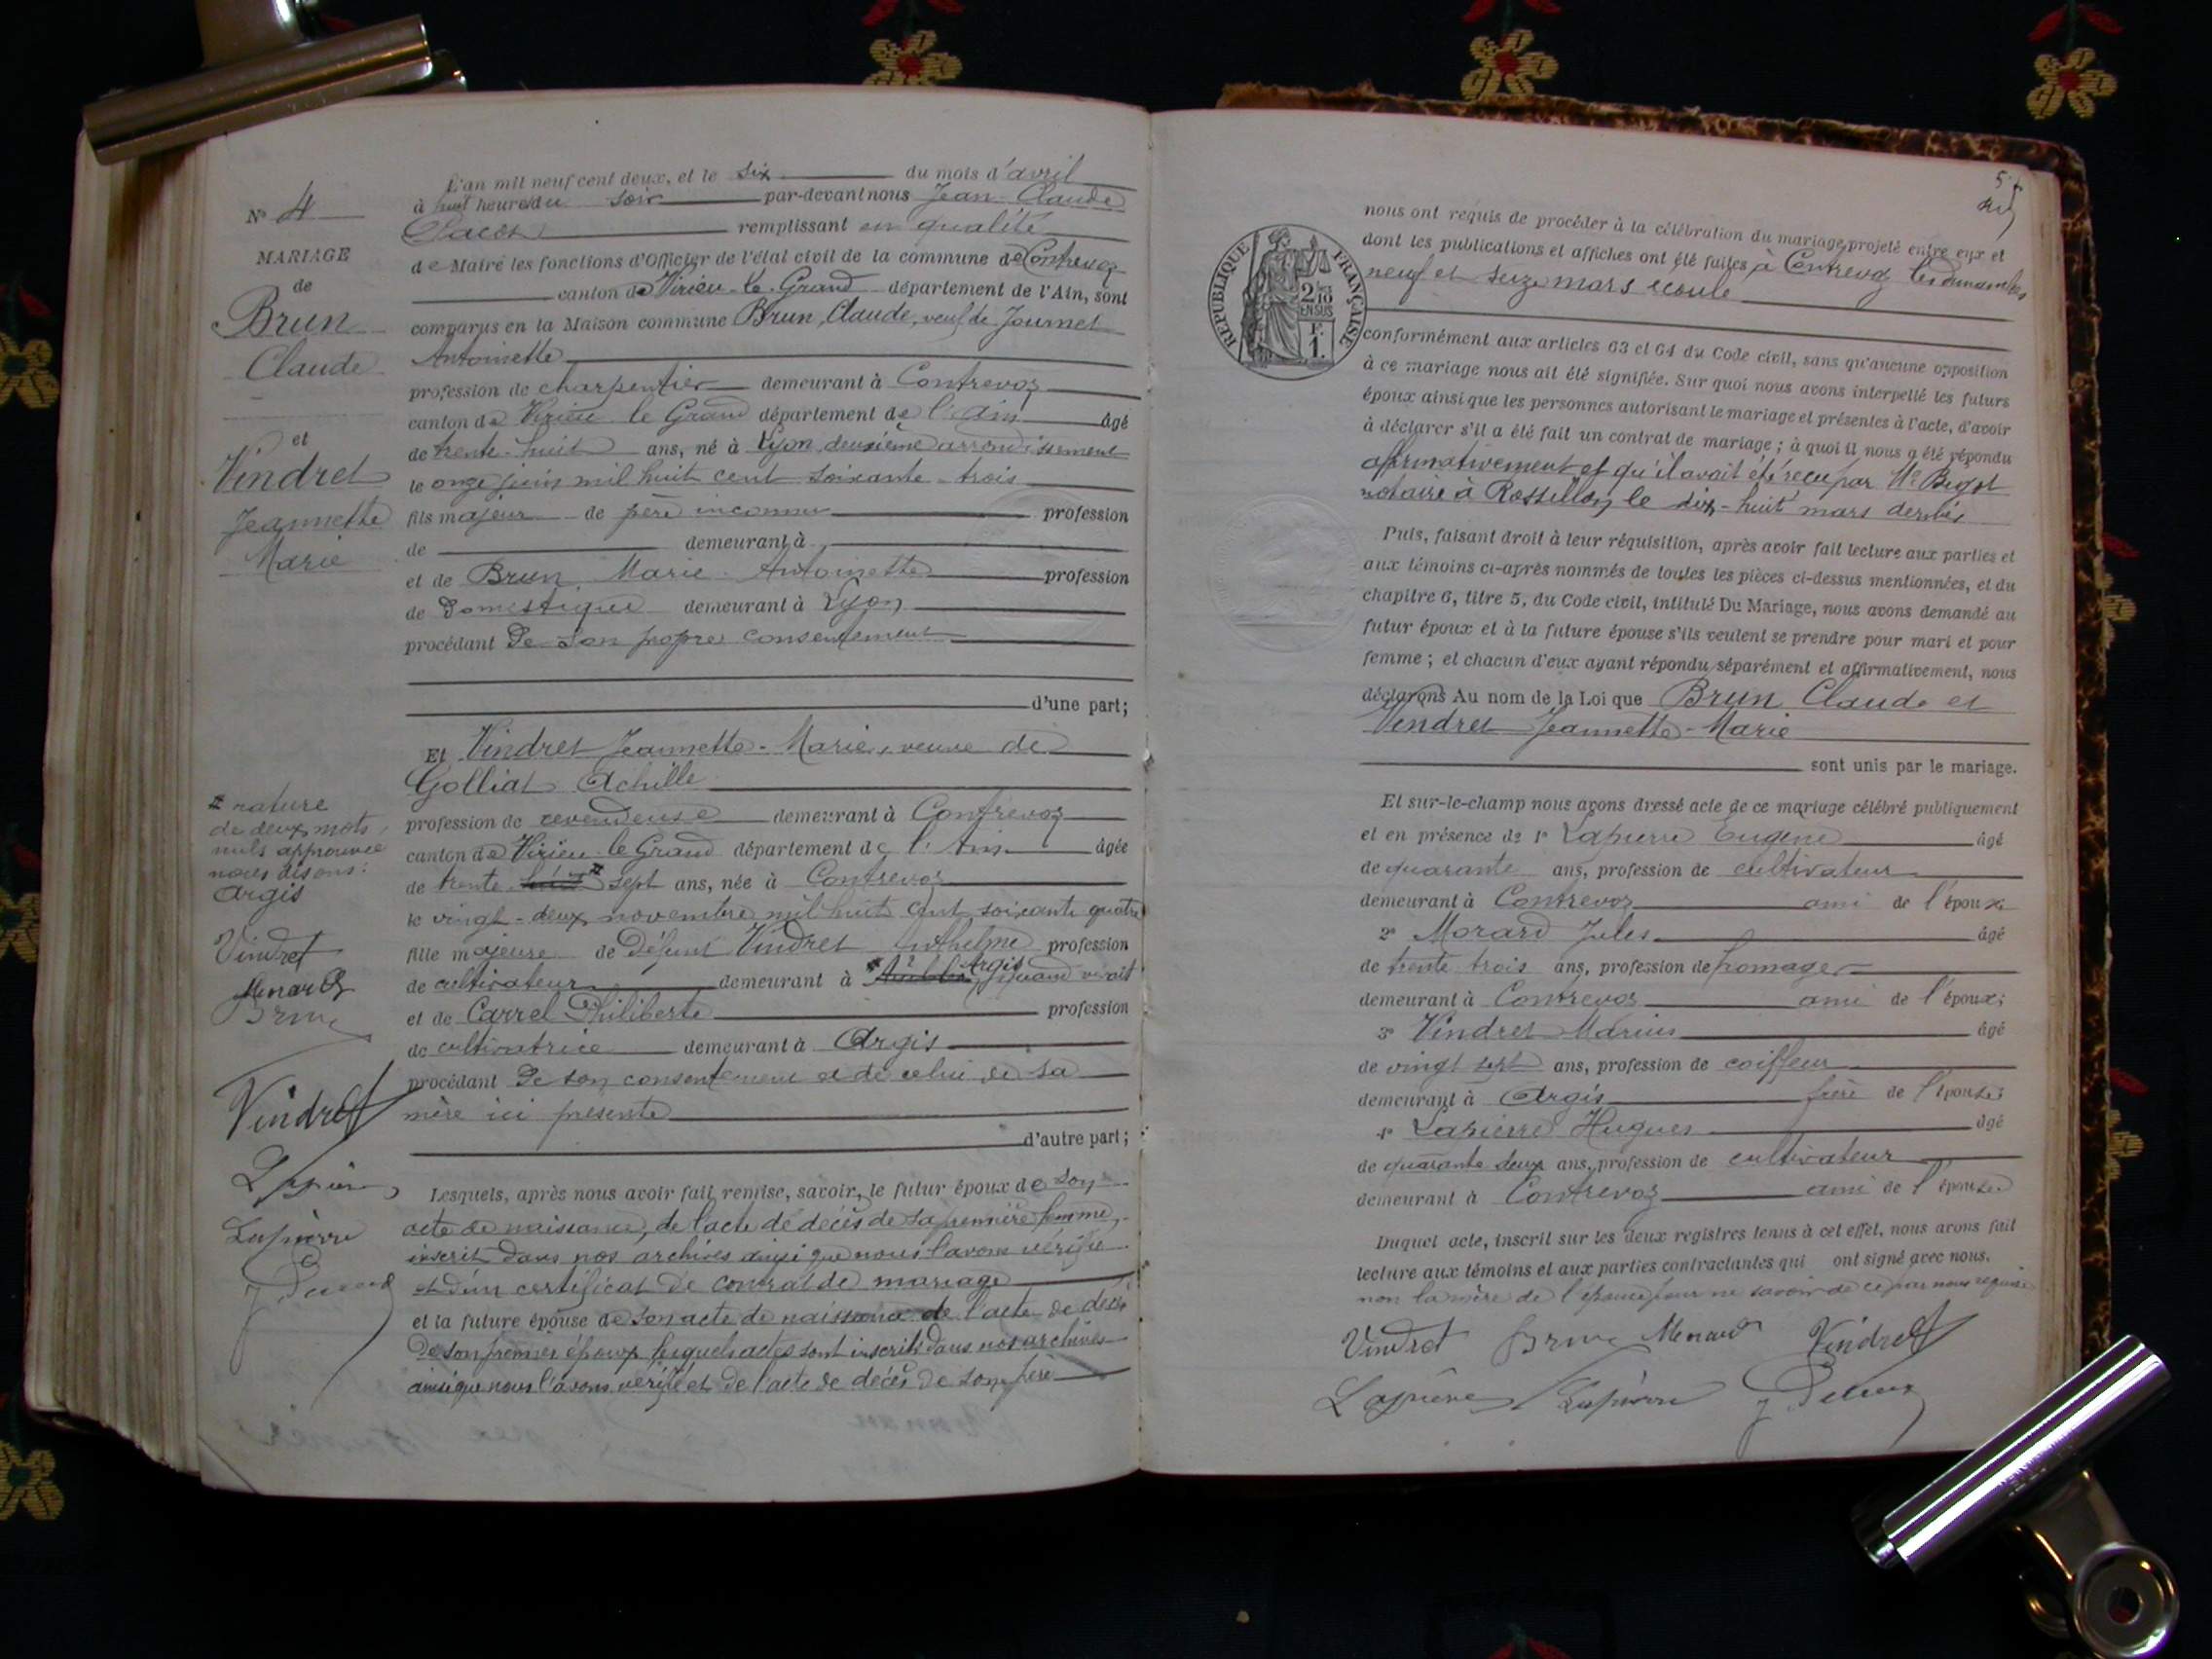 L'an mil neuf cent deux, et le six du mois d'avril
à huit heures du soir par-devant nous Jean Claude
remplissant en qualité
de Maire les fonctions d'Officier de l'état civil de la commune de Contrevoz
canton de Virieu-le-Grand département de l'Ain, sont
comparus en la Maison commune Brun, Claude, veuf de Journet
Antoinette
profession de charpentier demeurant à Contrevoz
canton de Virieu le Grand département de l'Ain âgé
de trente-huit ans, né à Lyon deuxième arrondissement
le onze juin mil huit cent soixante-trois
fils majeur de père inconnu profession
de demeurant à
et de Brun Marie Antoinette profession
de domestique demeurant à Lyon
procédant de son propre consentement
d'une part;
Et Vindret Jeannette-Marie, veuve de
Golliat Achille
profession de revendeuse demeurant à Contrevoz
canton de Virieu le Grand département de l'Ain âgée
de trente huit # sept ans, née à Contrevoz
le vingt-deux novembre mil huit cent soixante quatre
fille majeure de défunt Vindret Anthelme profession
de cultivateur demeurant à Argis quand vivait
et de Carrel Philiberte profession
de cultivatrice demeurant à Argis
procédant de son consentement et de celui de sa
mère ici présente
d'autre part;
Lesquels, après nous avoir fait remise, savoir, le futur époux de son
acte de naissance, de l'acte de décès de sa première femme,
inscrit dans nos archives ainsi que nous l'avons vérifié
et d'un certificat de contrat de mariage
et la future épouse de son acte de naissance de l'acte de décès
de son premier époux lesquels actes sont inscrits dans nos archives
ainsi que nous l'avons vérifié et de l'acte de décès de son père
N° 4
MARIAGE
de
Brun
Claude
et
Vindret
Jeannette
Marie
# rature
de deux mots
nuls approuvée
nous disons:
Argis
Vindret
Menard
Brun
Vindret
Lapierre
Lapierre
57
nous ont requis de procéder à la célébration du mariage projeté entre eux et
dont les publications et affiches ont été faites à Contrevoz les dimanches
neuf et seize mars écoulé
RÉPUBLIQUE FRANÇAISE
2/10
EN SUS
F.
1.
conformément aux articles 63 et 64 du Code civil, sans qu'aucune opposition
à ce mariage nous ait été signifiée. Sur quoi nous avons interpellé les futurs
époux ainsi que les personnes autorisant le mariage et présentes à l'acte, d'avoir
à déclarer s'il a été fait un contrat de mariage; à quoi il nous a été répondu
affirmativement et qu'il avait été reçu par Me
notaire à Rossillon, le dix-huit mars dernier
Puis, faisant droit à leur réquisition, après avoir fait lecture aux parties et
aux témoins ci-après nommés de toutes les pièces ci-dessus mentionnées, et du
chapitre 6, titre 5, du Code civil, intitulé Du Mariage, nous avons demandé au
futur époux et à la future épouse s'ils veulent se prendre pour mari et pour
femme; et chacun d'eux ayant répondu séparément et affirmativement, nous
déclarons Au nom de la Loi que Brun Claude et
Vindret Jeannette-Marie
sont unis par le mariage.
Et sur-le-champ nous avons dressé acte de ce mariage célébré publiquement
et en présence de 1° Lapierre Eugène âgé
de quarante ans, profession de cultivateur
demeurant à Contrevoz ami de l'époux
2° Morard Jules âgé
de trente trois ans, profession de fromager
demeurant à Contrevoz ami de l'époux;
3° Vindret Marius âgé
de vingt sept ans, profession de coiffeur
demeurant à Argis frère de l'épouse;
4° Lapierre Hugues âgé
de quarante deux ans, profession de cultivateur
demeurant à Contrevoz ami de l'épouse
Duquel acte, inscrit sur les deux registres tenus à cet effet, nous avons fait
lecture aux témoins et aux parties contractantes qui ont signé avec nous.
non la mère de l'épouse pour ne savoir de ce par nous requise
Vindret Brun Menard Vindret
Lapierre Lapierre